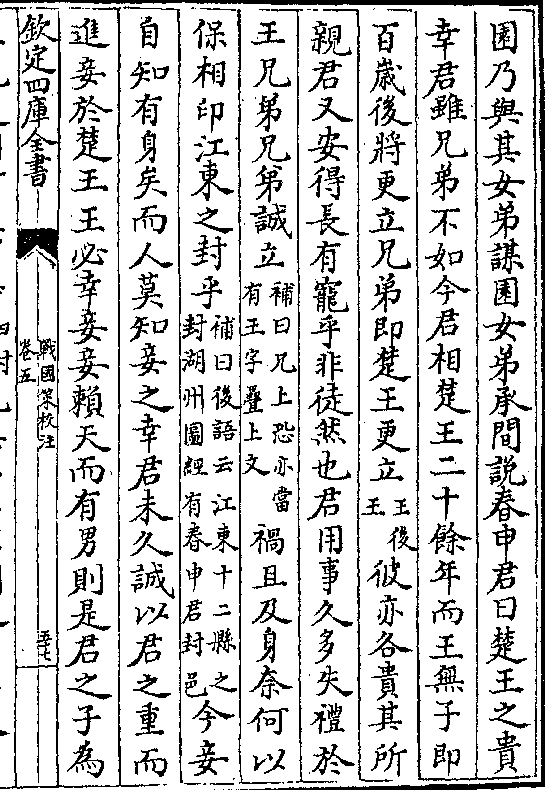 園乃與其女弟謀園女弟承間説春申君曰楚王之貴
幸君雖兄弟不如今君相楚王二十餘年而王無子即
百歲後將更立兄弟即楚王更立
王後
王
彼亦各貴其所
親君又安得長有寵乎非徒然也君用事久多失禮於
王兄弟兄弟誠立
補曰兄上恐亦當
有王字疊上文
禍且及身奈何以
保相印江東之封乎
補曰後語云江東十二縣之
封湖州圖經有春申君封邑
今妾
自知有身矣而人莫知妾之幸君未久誠以君之重而
進妾於楚王王必幸妾妾賴天而有男則是君之子為
欽定四庫全書
戰國策校注
卷五
五七